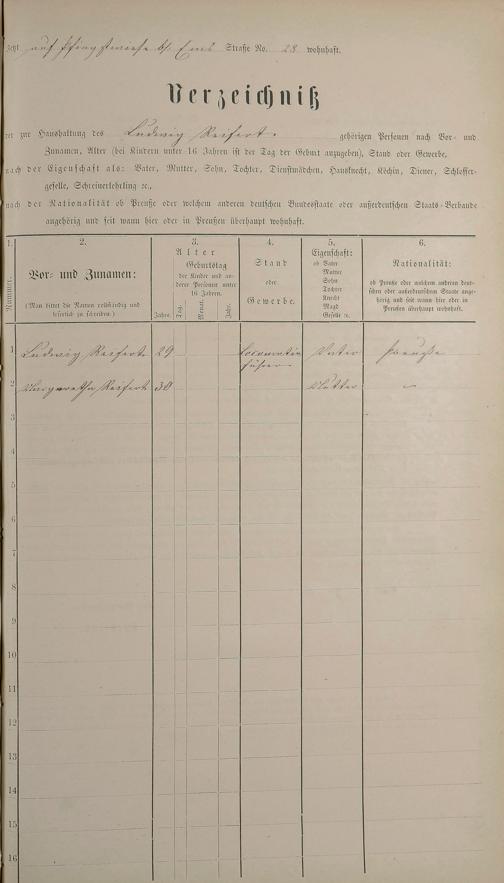 Jetzt auf Pfingstwiese b/ Ems Straße No. 28 wohnhaft.
Verzeichniß
der zur Haushaltung des Ludwig Reifert. gehörigen Personen nach Vor- und
Zunamen, Alter (bei Kindern unter 16 Jahren ist der Tag der Geburt anzugeben), Stand oder Gewerbe,
nach der Eigenschaft als: Vater, Mutter, Sohn, Tochter, Dienstmädchen, Hausknecht, Köchin, Diener, Schlosser-
geselle, Schreinerlehrling ꝛc.,
nach der Nationalität ob Preuße oder welchem anderen deutschen Bundesstaate oder außerdeutschen Staats-Verbande
angehörig und seit wann hier oder in Preußen überhaupt wohnhaft.
1.
Nummer.
2.
Vor- und Zunamen:
(Man bittet die Namen vollständig und
leserlich zu schreiben.)
3.
Alter
Geburtstag
der Kinder und an-
derer Personen unter
16 Jahren.
Jahre. Tag. Monat. Jahr.
4.
Stand
oder
Gewerbe.
5.
Eigenschaft:
ob Vater
Mutter
Sohn
Tochter
Knecht
Magd
Geselle ꝛc.
6.
Nationalität:
ob Preuße oder welchem anderen deut-
schen oder außerdeutschen Staate ange-
hörig und seit wann hier oder in
Preußen überhaupt wohnhaft.
1 Ludwig Reifert 29 Locomotiv Vater Preuße
führer
2 Margaretha Reifert 30 Mutter "
3
4
5
6
7
8
9
10
11
12
13
14
15
16